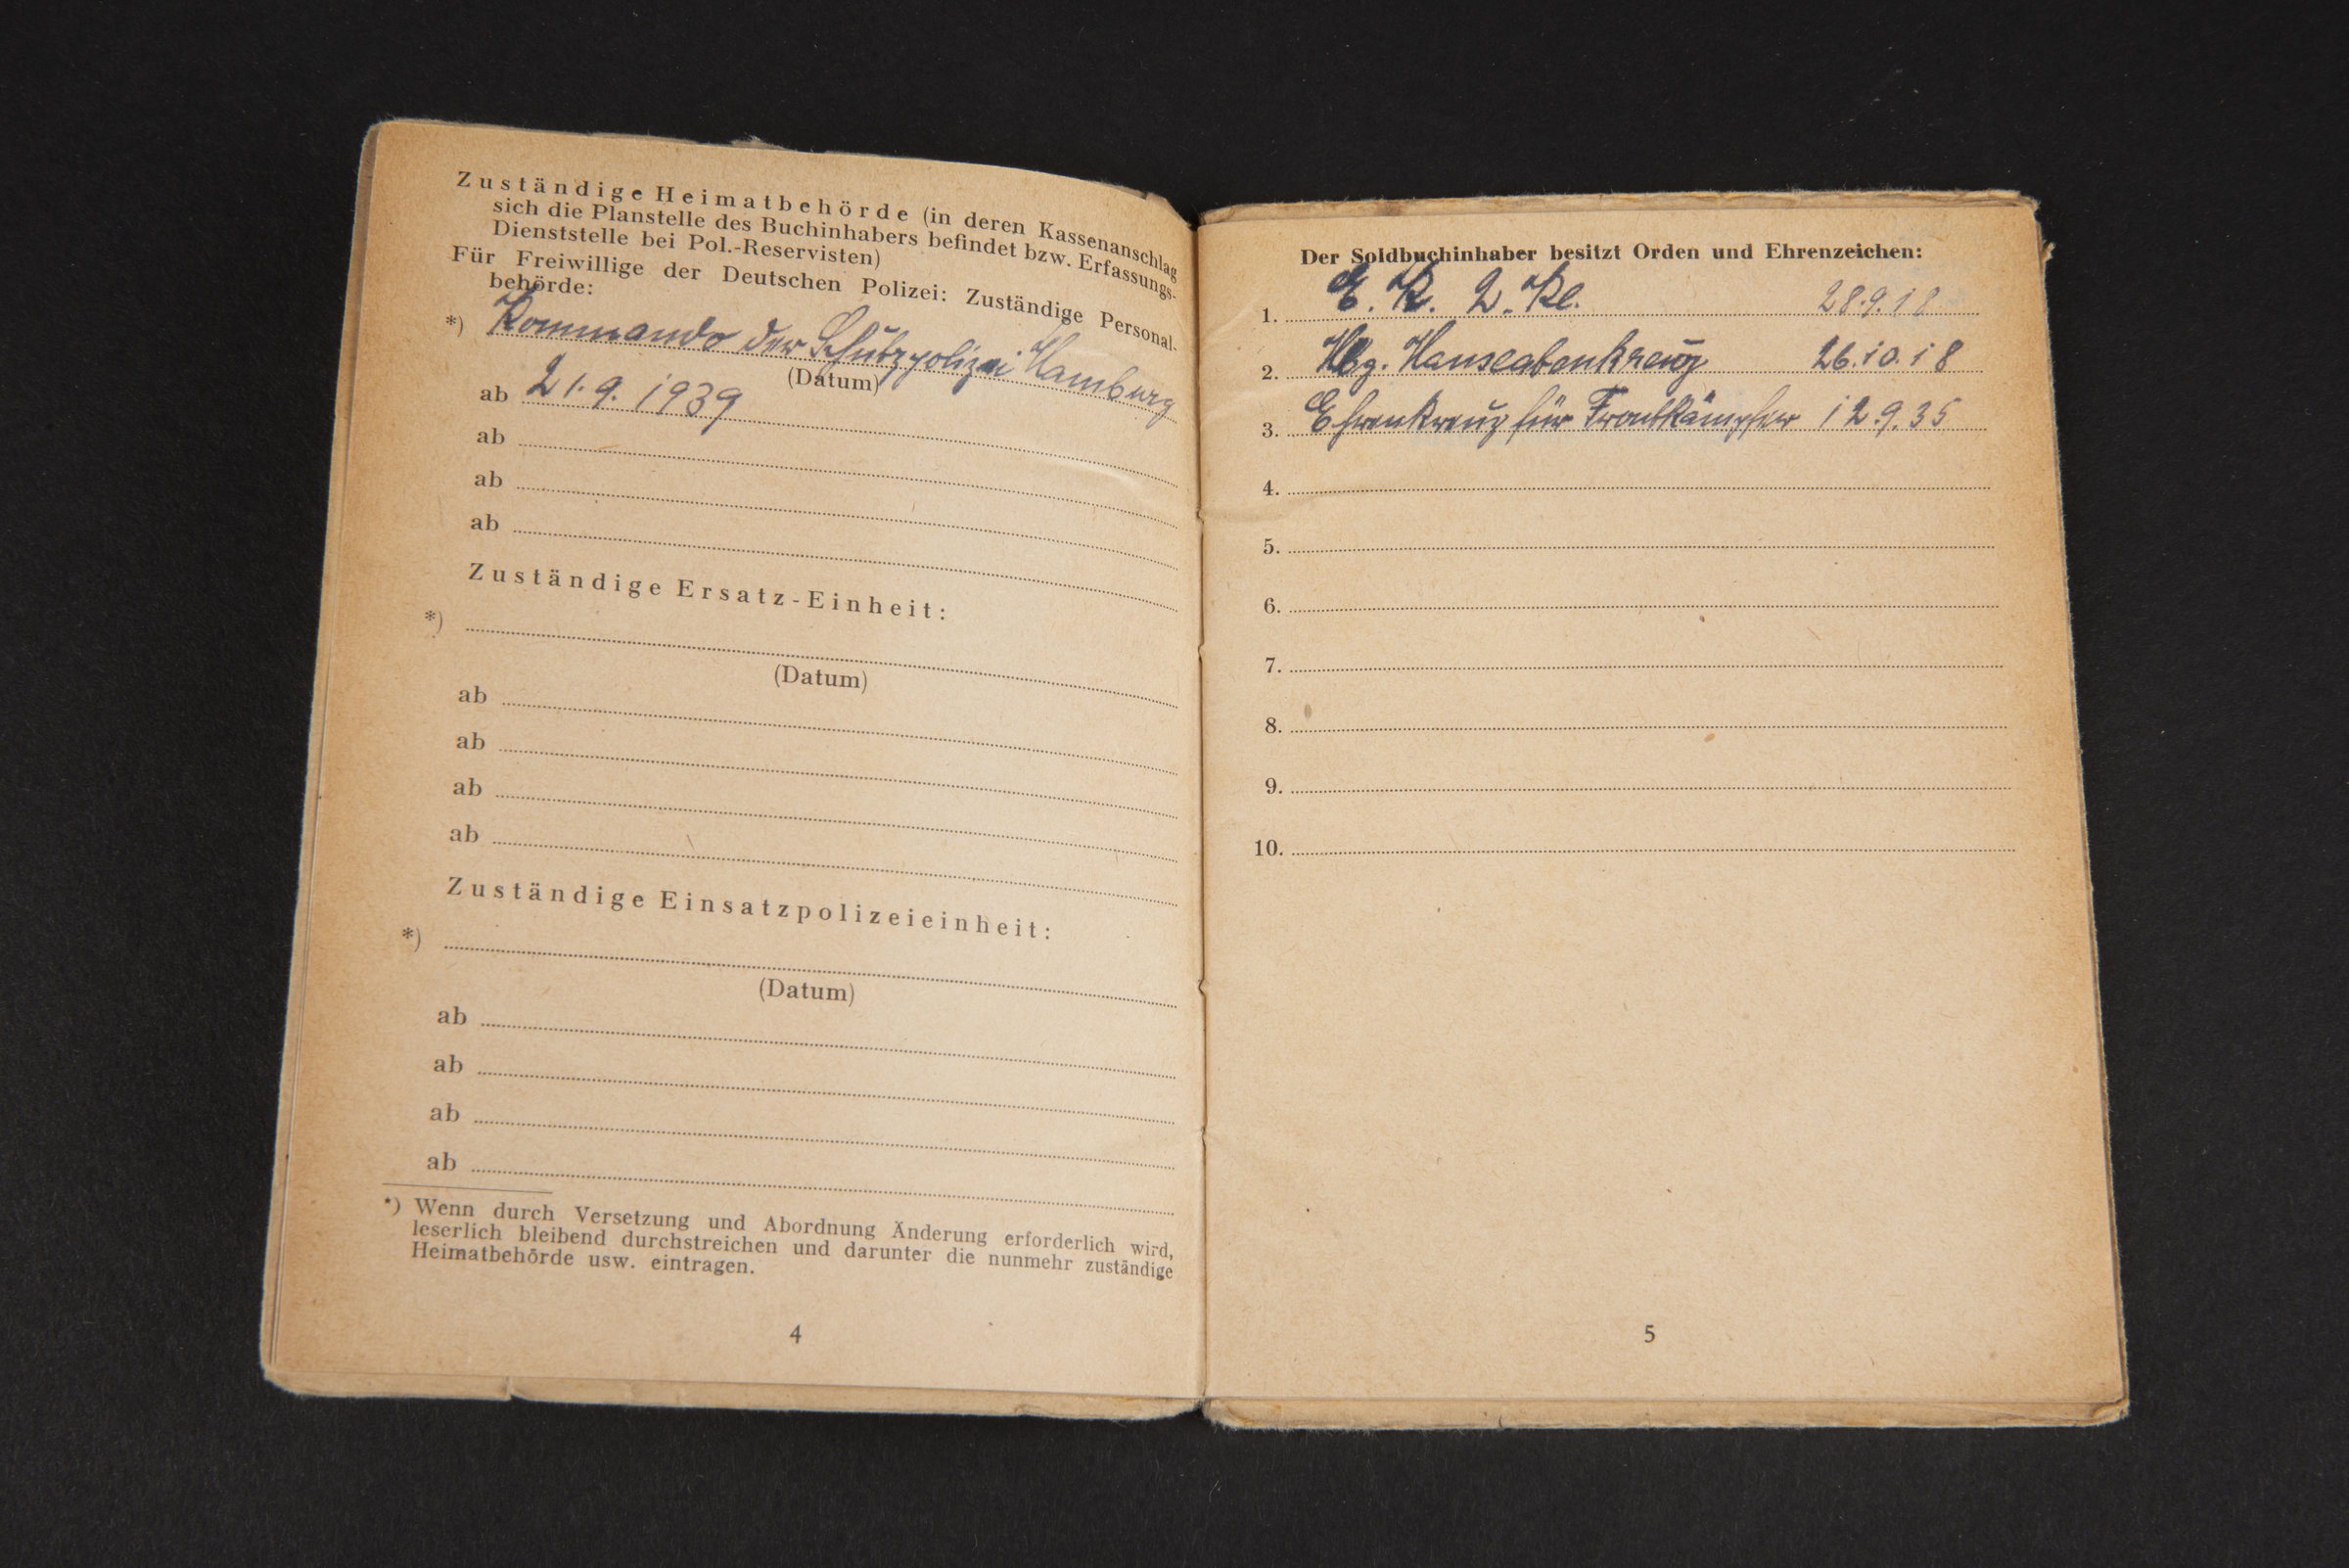 Zuständige Heimatbehörde (in deren Kassenanschlag
sich die Planstelle des Buchinhabers befindet bzw. Erfassungs-
Dienststelle bei Pol.-Reservisten)
Für Freiwillige der Deutschen Polizei: Zuständige Personal-
behörde:
*) Kommando der Schutzpolizei Hamburg
(Datum)
ab 21.9.1939
ab
ab
ab
Zuständige Ersatz-Einheit:
*)
(Datum)
ab
ab
ab
ab
Zuständige Einsatzpolizeieinheit:
*)
(Datum)
ab
ab
ab
ab
*) Wenn durch Versetzung und Abordnung Änderung erforderlich wird,
leserlich bleibend durchstreichen und darunter die nunmehr zuständige
Heimatbehörde usw. eintragen.
4
Der Soldbuchinhaber besitzt Orden und Ehrenzeichen:
1. E. K. 2. Kl. 28.9.18
2. Hbg. Hanseatenkreuz 26.10.18
3. Ehrenkreuz für Frontkämpfer 12.9.35
4.
5.
6.
7.
8.
9.
10.
5